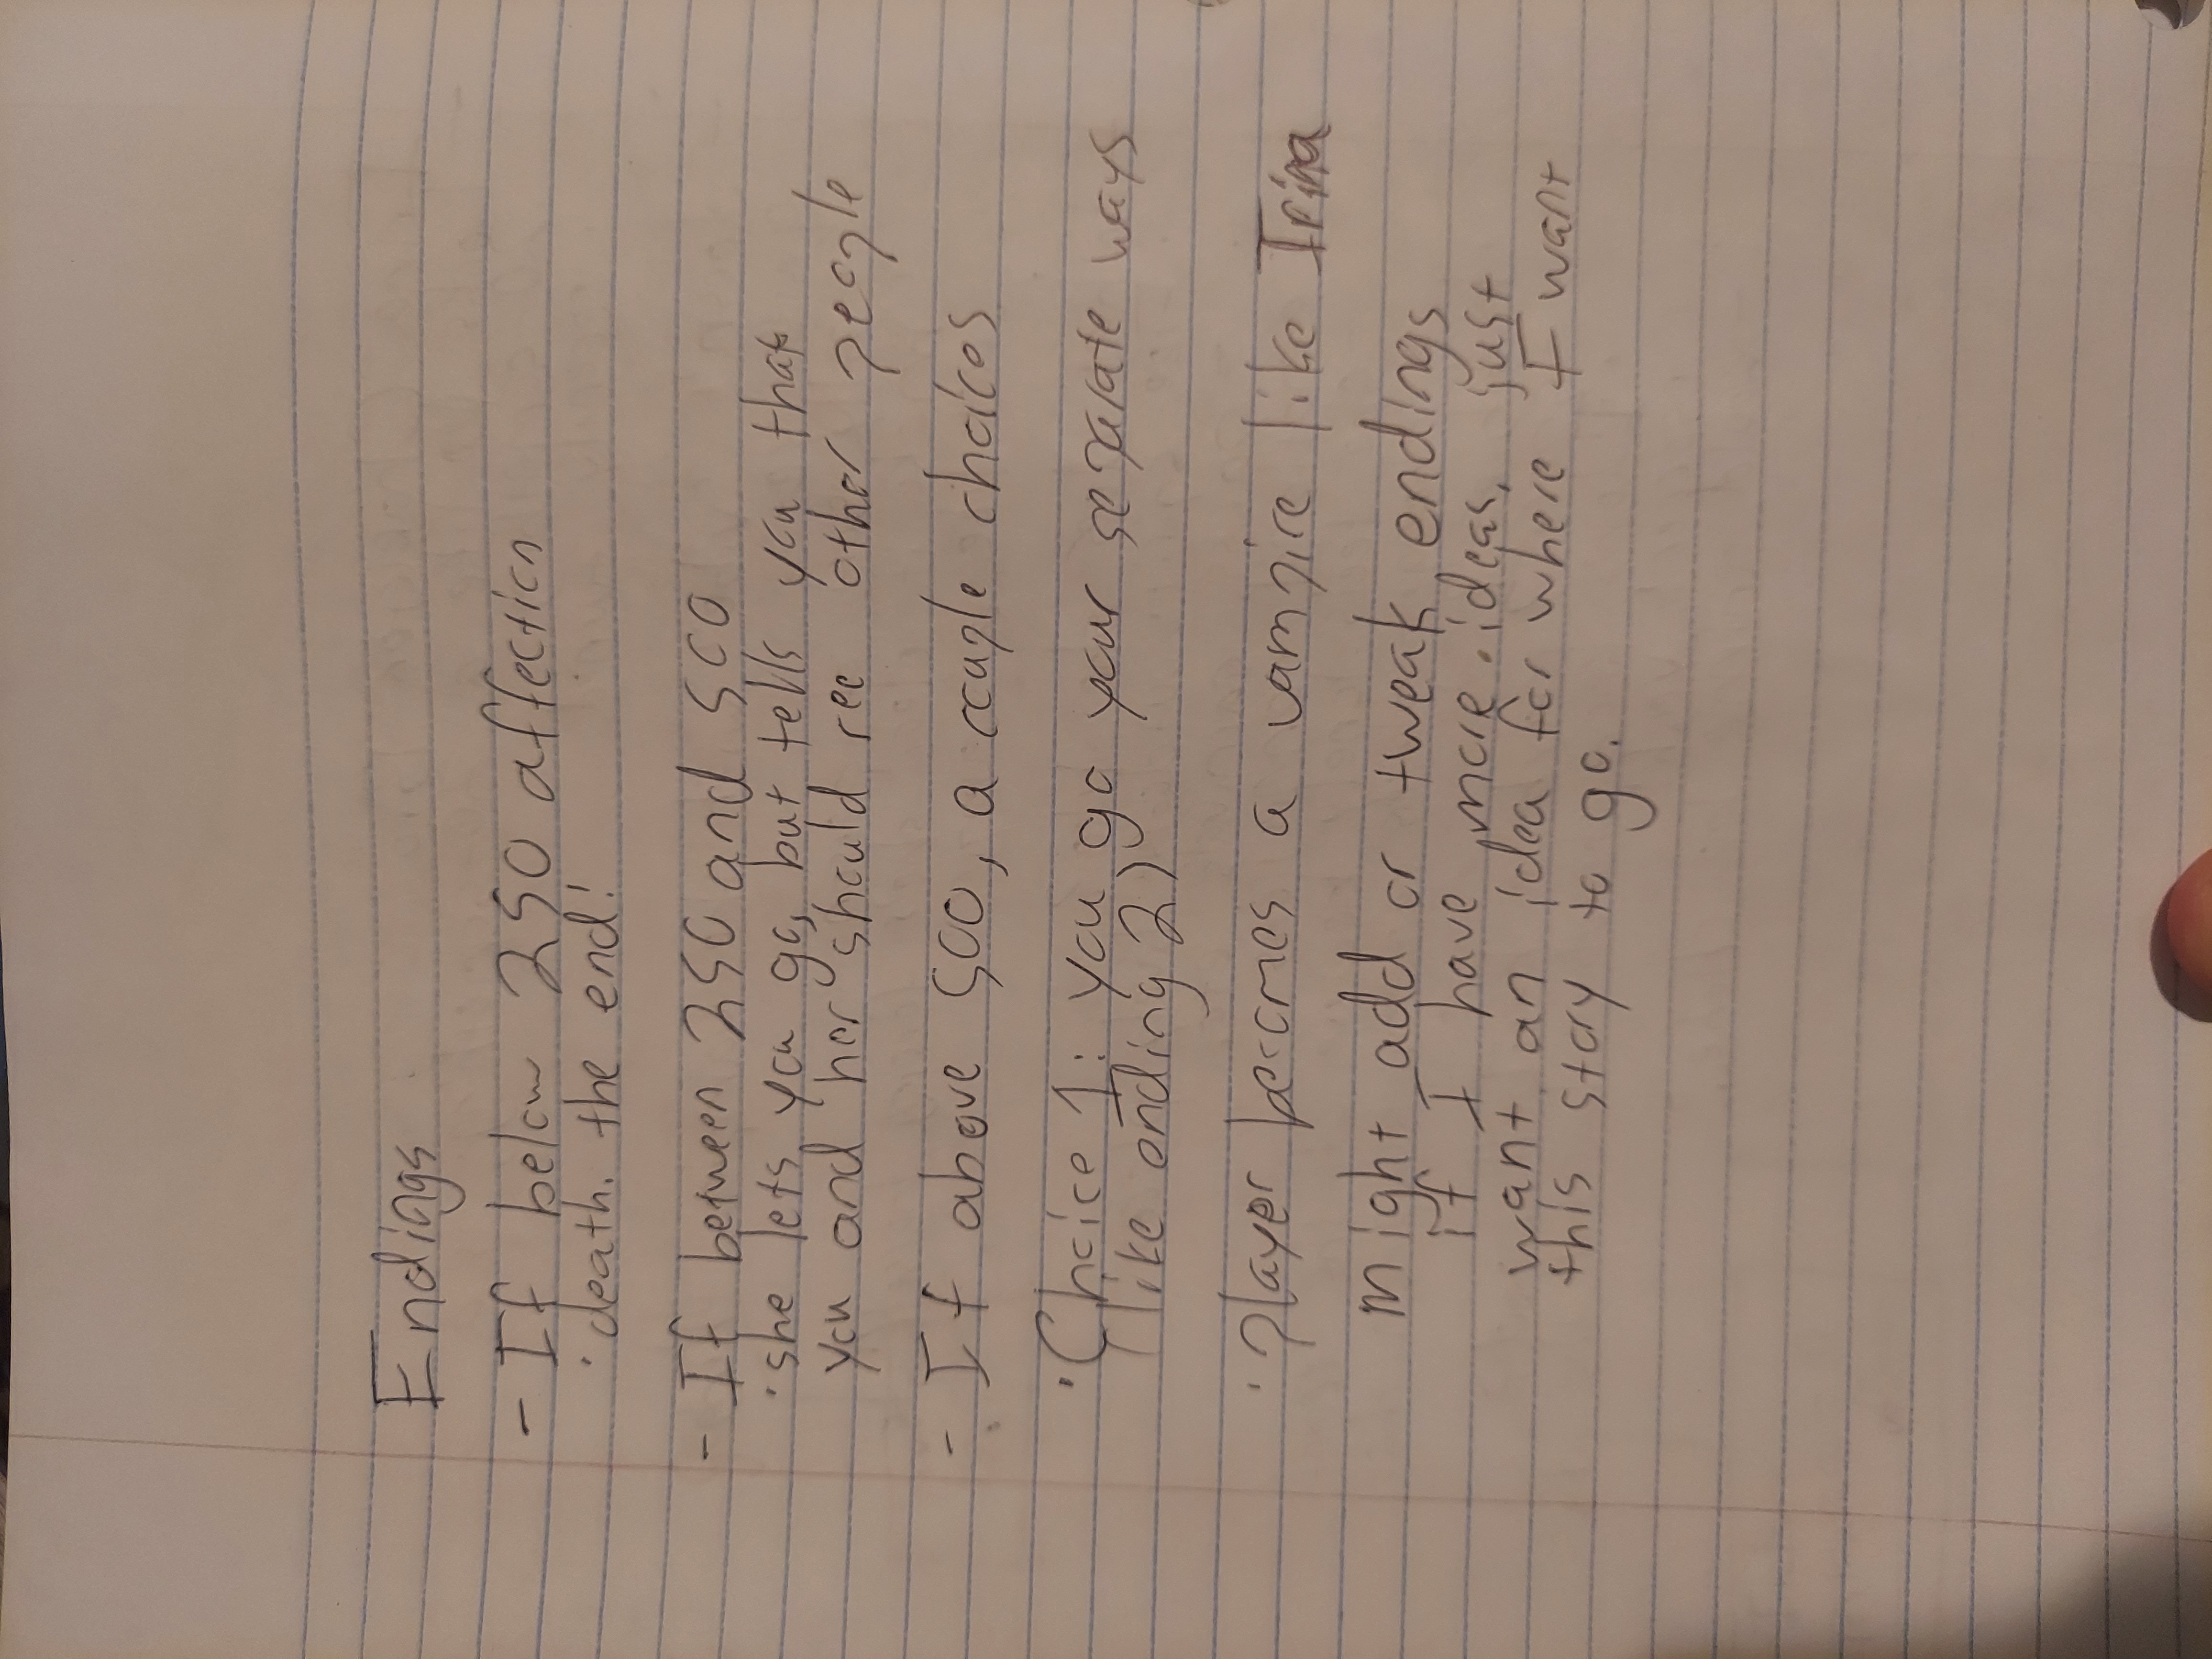 Endings
- If below 250 affection
· death. the end!
- If between 250 and 500
· she lets you go, but tells you that
you and her should see other people
- If above 500, a couple choices
· Choice 1: you go your separate ways
(like ending 2)
· player becomes a vampire like Irina
might add or tweak endings
if I have more ideas, just
want an idea for where I want
this story to go.